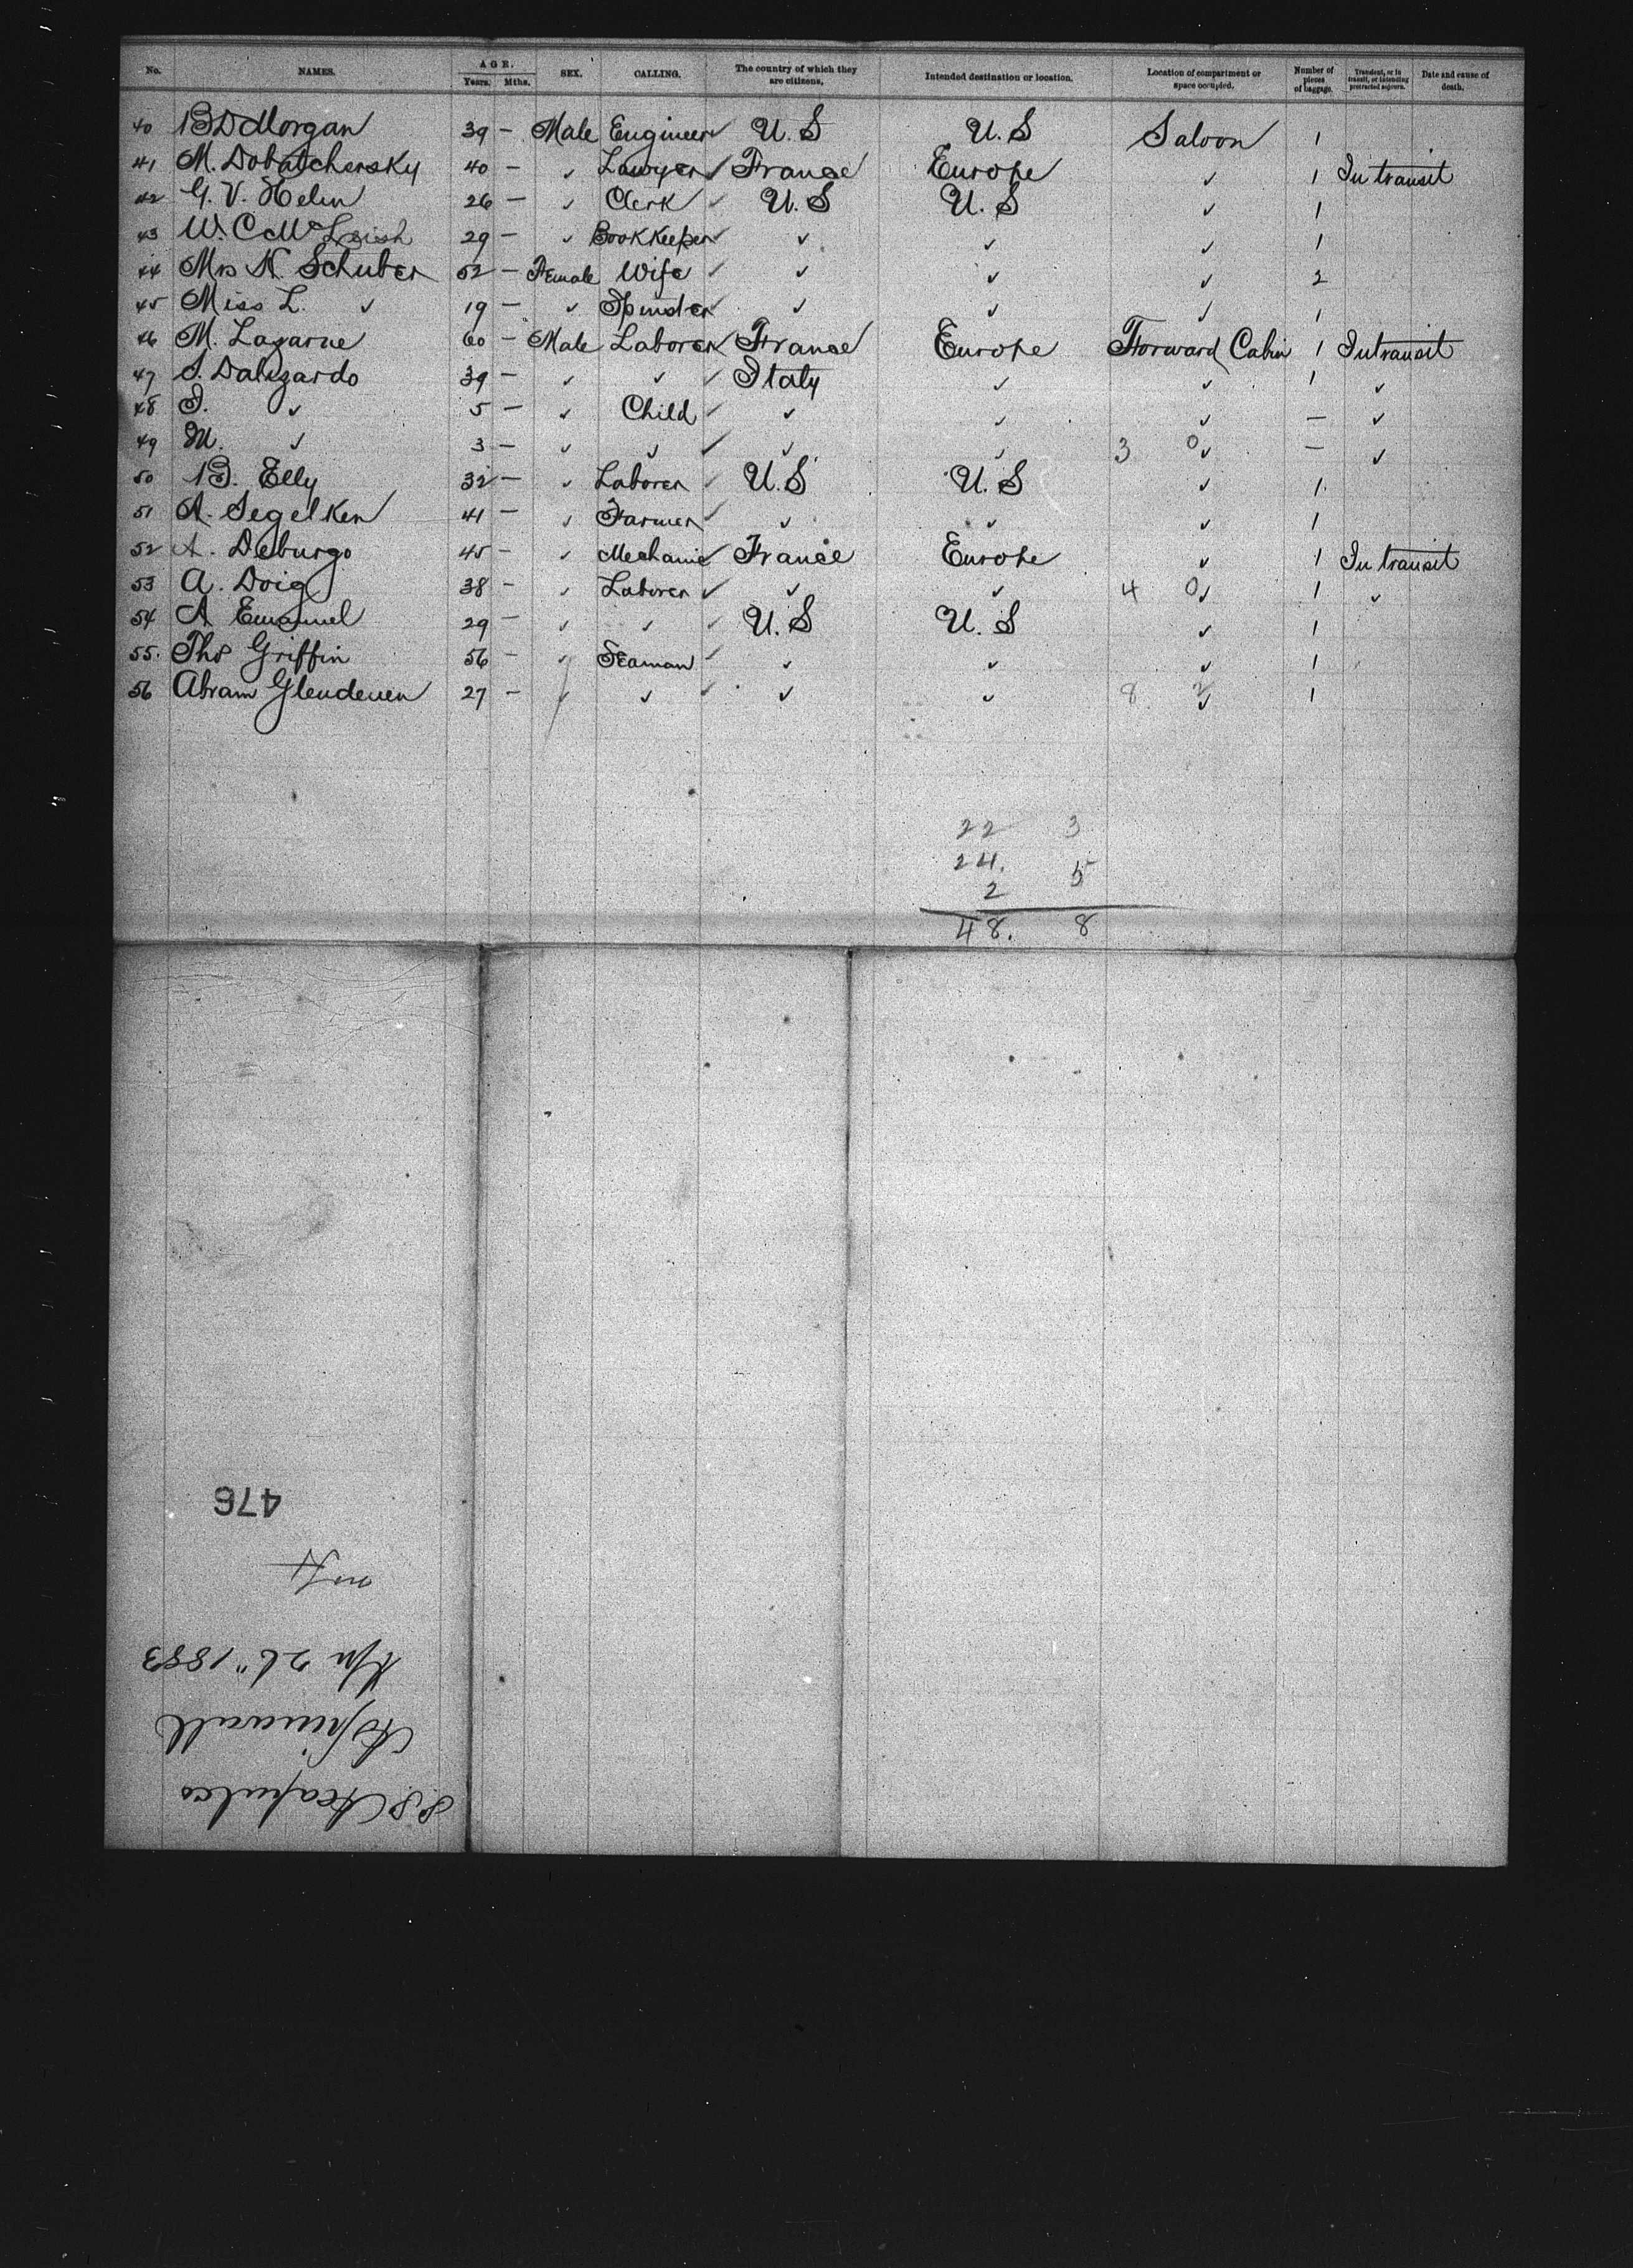 No. NAMES. AGE. Years. Mths. SEX. CALLING. The country of which they are citizens. Intended destination or location. Location of compartment or space occupied. Number of pieces of baggage. Transient, or in transit, or intending protracted sojourn. Date and cause of death.
40 B D Morgan 39 - Male Engineer ✓ U.S U.S Saloon 1
41 M. Dobatchersky 40 - ✓ Lawyer ✓ France Europe ✓ 1 In transit
42 G. V. Helm 26 - ✓ Clerk ✓ U.S U.S ✓ 1
43 W. C McLeish 29 - ✓ Bookkeeper ✓ ✓ ✓ ✓ 1
44 Mrs K. Schuber 52 - Female Wife ✓ ✓ ✓ ✓ 2
45 Miss L. ✓ 19 - ✓ Spinster ✓ ✓ ✓ ✓ 1
46 M. Lazarue 60 - Male Laborer ✓ France Europe Forward Cabin 1 In transit
47 S. Dalizardo 39 - ✓ ✓ ✓ Italy ✓ ✓ 1 ✓
48 S. ✓ 5 - ✓ Child ✓ ✓ ✓ ✓ - ✓
49 M. ✓ 3 - ✓ ✓ ✓ ✓ ✓ 3 0 ✓ - ✓
50 B. Elly 32 - ✓ Laborer ✓ U.S U.S ✓ 1
51 A. Segelken 41 - ✓ Farmer ✓ ✓ ✓ ✓ 1
52 A. Deburgo 45 - ✓ Mechanic ✓ France Europe ✓ 1 In transit
53 A. Doig 38 - ✓ Laborer ✓ ✓ ✓ 4 0 ✓ 1 ✓
54 A Emanuel 29 - ✓ ✓ ✓ U.S U.S ✓ 1
55. Thos Griffin 56 - ✓ Seaman ✓ ✓ ✓ ✓ 1
56 Abram Glendenen 27 - ✓ ✓ ✓ ✓ ✓ 8 ✓ 1
22 3
24. 5
2
48. 8
S.S. Acapulco
Aspinwall
26" 1883
476